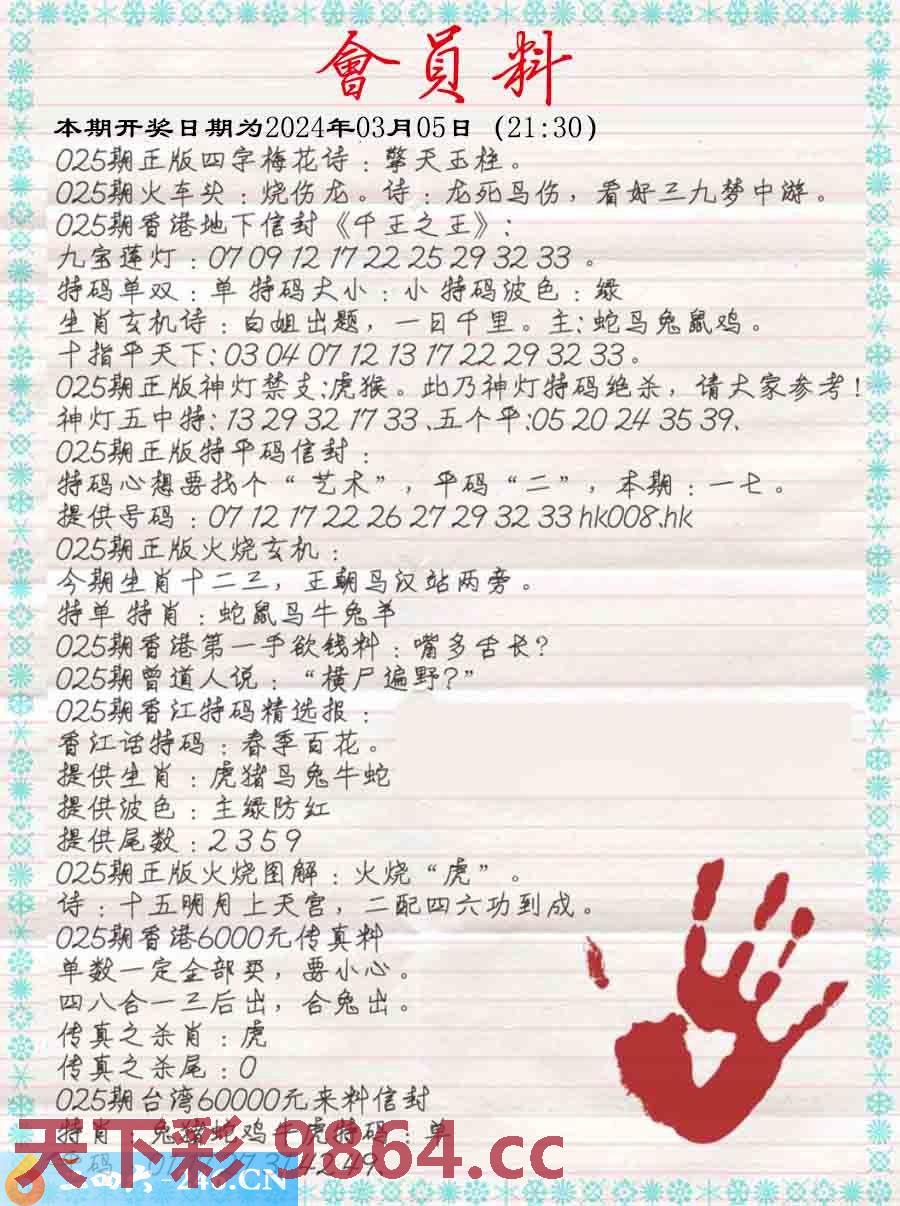 會員料
本期开奖日期为2024年03月05日（21:30）
025期正版四字梅花诗：擎天玉柱。
025期火车头：烧伤龙。诗：龙死鸟伤，看好三九梦中游。
025期香港地下信封《千王之王》：
九宝莲灯：07 09 12 17 22 25 29 32 33 。
特码单双：单 特码大小：小 特码波色：绿
生肖玄机诗：白姐出题，一日千里。主：蛇马兔鼠鸡。
十指平天下：03 04 07 12 13 17 22 29 32 33。
025期正版神灯禁支：虎猴。此乃神灯特码绝杀，请大家参考！
神灯五中特：13 29 32 17 33 、五个平：05 20 24 35 39、
025期正版特平码信封：
特码心想要找个“艺术”，平码“二”，本期：一七。
提供号码：07 12 17 22 26 27 29 32 33 hk008.hk
025期正版火烧玄机：
今期生肖十二三，王朝马汉站两旁。
特单 特肖：蛇鼠马牛兔羊
025期香港第一手欲钱料：嘴多舌长？
025期曾道人说：“横尸遍野？”
025期香江特码精选报：
香江话特码：春季百花。
提供生肖：虎猪马兔牛蛇
提供波色：主绿防红
提供尾数：2 3 5 9
025期正版火烧图解：火烧“虎”。
诗：十五明月上天宫，二配四六功到成。
025期香港6000元传真料
单数一定全部买，要小心。
四八合一三后出，合兔出。
传真之杀肖：虎
传真之杀尾：0
025期台湾60000元来料信封
特肖：兔猪蛇鸡牛虎特码：单
天下彩 9864.cc
42 49.
-246.CN